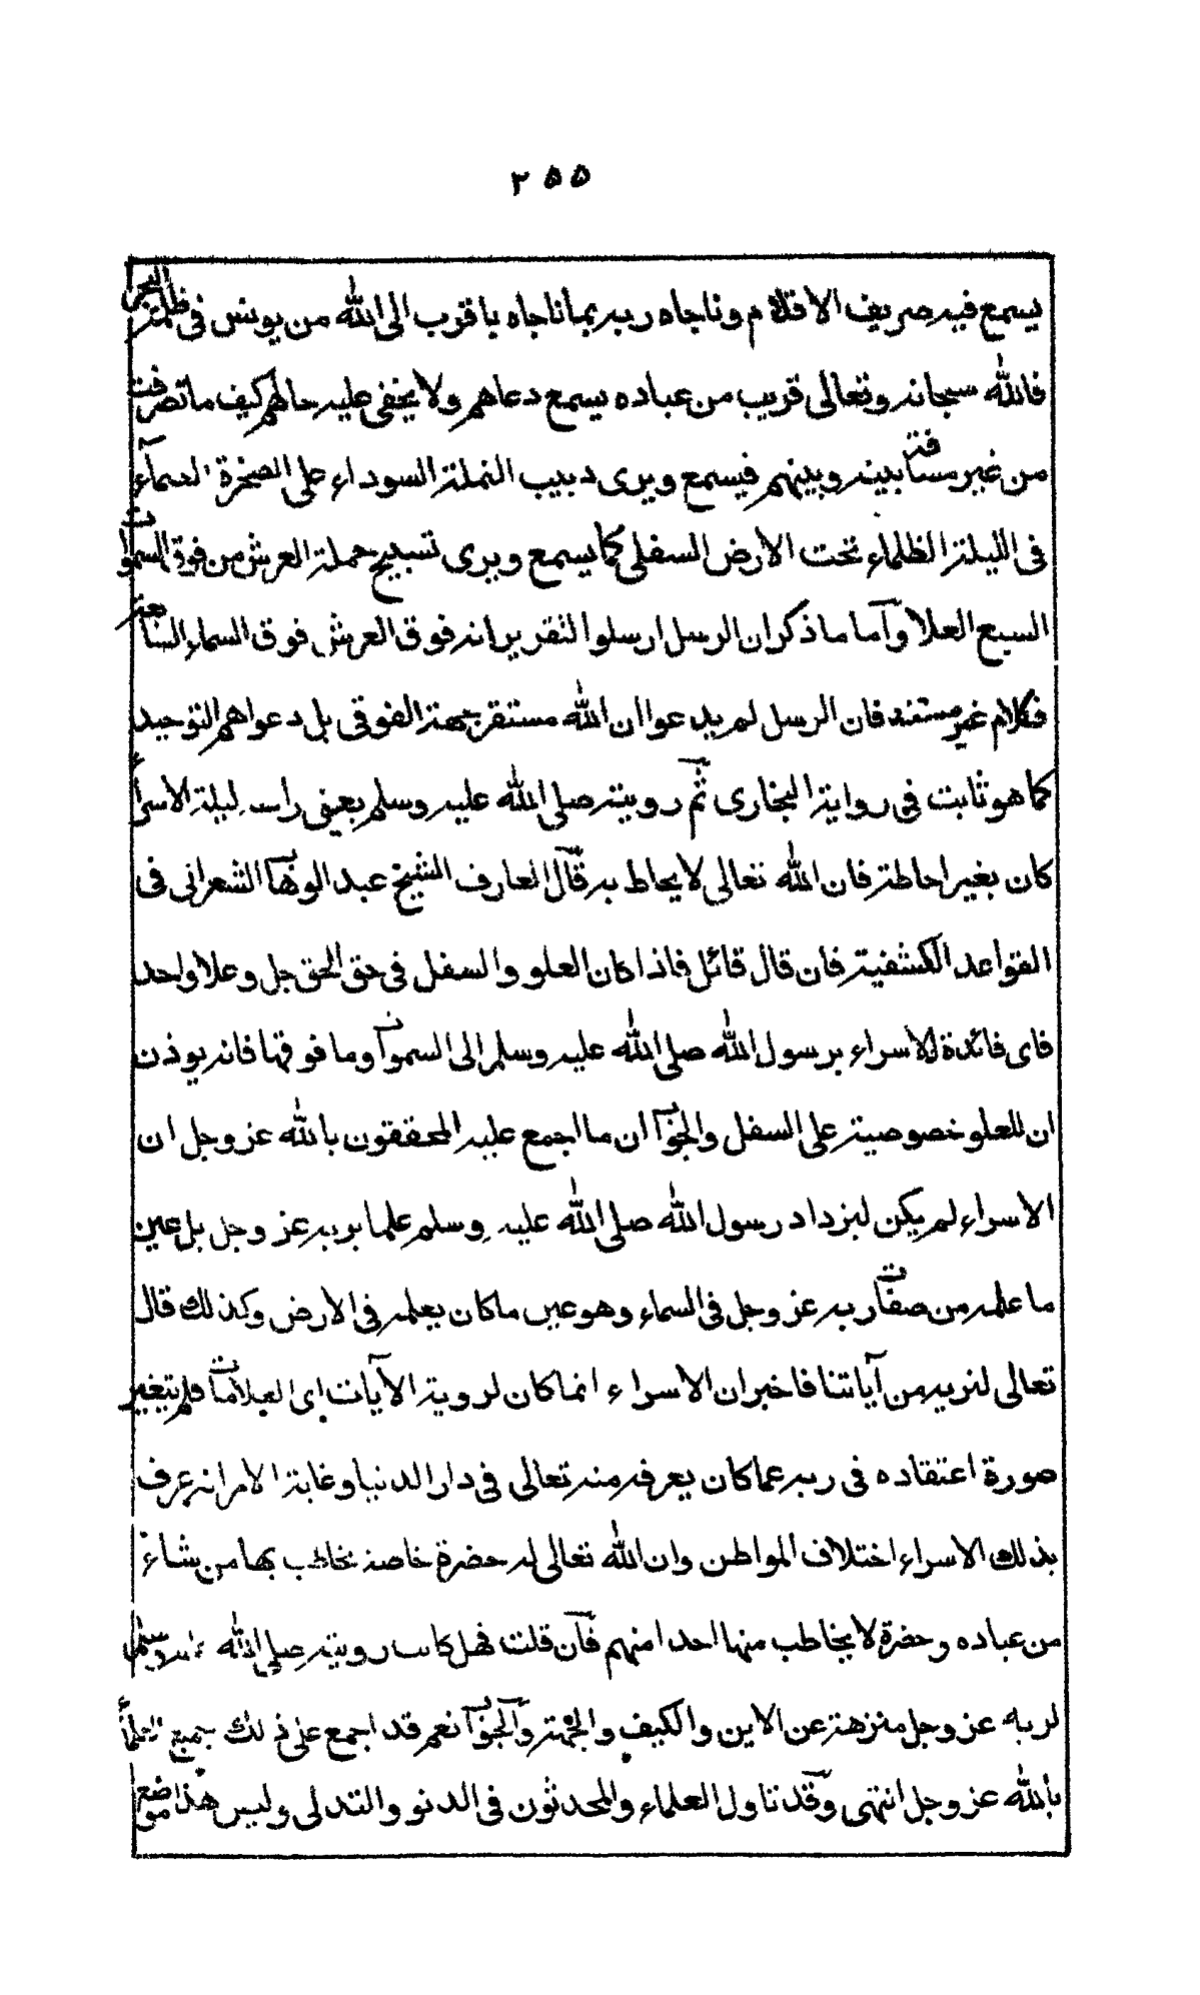 ٢٥٥
يسمع فيه صريف الاقلام وناجاه ربه بما ناجاه باقرب الى الله من يونس في ظلمة البحر
فالله سبحانه وتعالى قريب من عباده يسمع دعاهم ولا يخفى عليه حالهم كيف ما تصرفت
من غير مسافة بينه وبينهم فيسمع ويرى دبيب النملة السوداء على الصخرة الصمآء
في الليلة الظلماء تحت الارض السفلى كما يسمع ويرى تسبيح حملة العرش من فوق السموات
السبع العلا وآما ما ذكر ان الرسل ارسلوا لتقرير انه فوق العرش فوق السماء السابعة
فكلام غير مستند فان الرسل لم يدعوا ان الله مستقر بجهة الفوقى بل دعواهم التوحيد
كما هو ثابت في رواية البخارى ثم روية صلى الله عليه وسلم بعينى راسه ليلة الاسراء
كان بغير احاطة فان الله تعالى لا يحاط به قال العارف الشيخ عبد الوهاب الشعرانى في
القواعد الكشفية فان قال قائل فاذا كان العلو والسفل في حق الحق جل وعلا واحد
فاى فائدة للاسراء برسول الله صلى الله عليه وسلم الى السموات وما فوقها فانه يوذن
ان للعلو خصوصية على السفل والجواب ان ما اجمع عليه المحققون بالله عز وجل ان
الاسراء لم يكن ليزداد رسول الله صلى الله عليه وسلم علما بربه عز وجل بل عين
ما علمه من صفات ربه عز وجل في السماء وهو عين ما كان يعلمه في الارض وكذلك قال
تعالى لنريه من آياتنا فاخبر ان الاسراء انما كان لروية الآيات اى العلامات فلم يتغير
صورة اعتقاده في ربه عما كان يعرفه منه تعالى في دار الدنيا وغاية الامر انه عرف
بذلك الاسراء اختلاف المواطن وان الله تعالى له حضرة خاصة يخاطب بها من شاء
من عباده وحضرة لا يخاطب منها احدا منهم فآن قلت فهل كانت رويته صلى الله عليه وسلم
لربه عز وجل منزهة عن الاين والكيف والجهة وآلجواب نعم قد اجمع على ذلك جميع العلماء
بالله عز وجل انتهى وقد تاول العلماء والمحدثون في الدنو والتدلى وليس هذا موضع